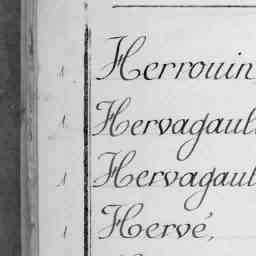 1 Herrouin
1 Hervagaul
1 Hervagaul
1 Hervé,